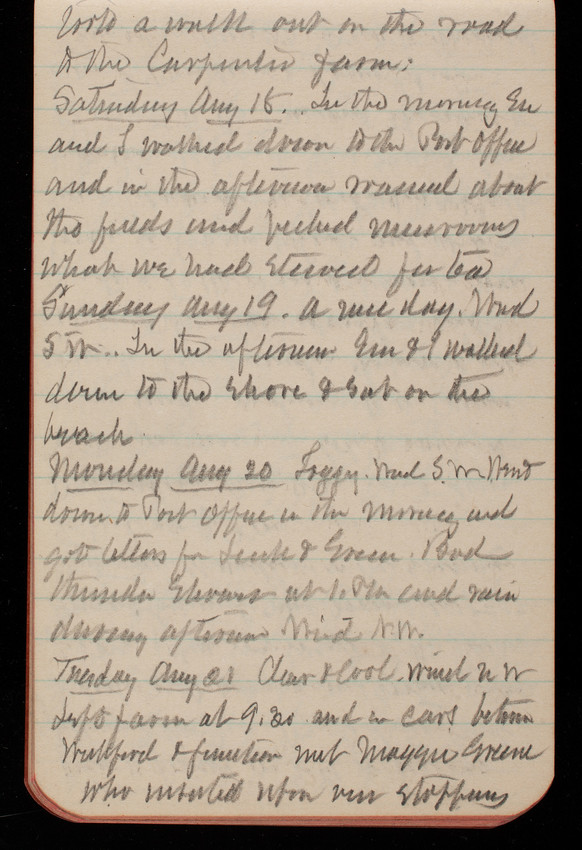 Took a walk out on the road
to the Carpenter farm.
Saturday Aug 18. In the morning Em
and I walked down to the Post Office
and in the afternoon roamed about
the fields and picked musrooms
what we had stewed for tea
Sunday Aug 19. A nice day. Wind
S W. In the afternoon Em & I walked
down to the shore & sat on the
beach.
Monday Aug 20 Foggy. Wind S.W. Went
down to Post Office in the morning and
got letters for & Green. Bad
thunder showers at 1. PM and rain
during afternoon Wind N.W.
Tuesday Aug 21 Clear & cool. Wind N W
Left farm at 9.20 and in cars between
Wickford & junction met Maggie Greene
who insisted upon our stopping